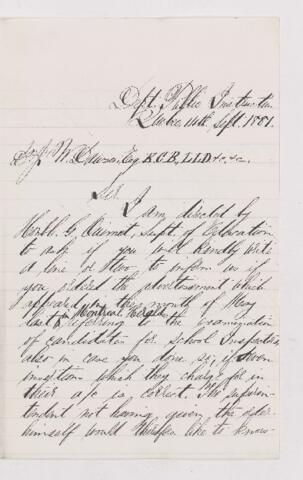 Dept. Public Instructn.
Quebec 14th, Sept. 1881.
Dawson, Esq K.C.B, L.L.D &c. &c.
Sir, I
I am directed by
Honble. G. Ouimet, Supt. of Education
to ask if you will kindly write
a line or two to inform us if
you ordered the advertisement which
appeared in the month of May
last in Montreal Herald referring to the examination
of candidates for school Inspectors,
also in case you done so, if even
insertion which they charge for in
their a/c is correct. The superin-
tendent not having given the order
himself would therefore like to know